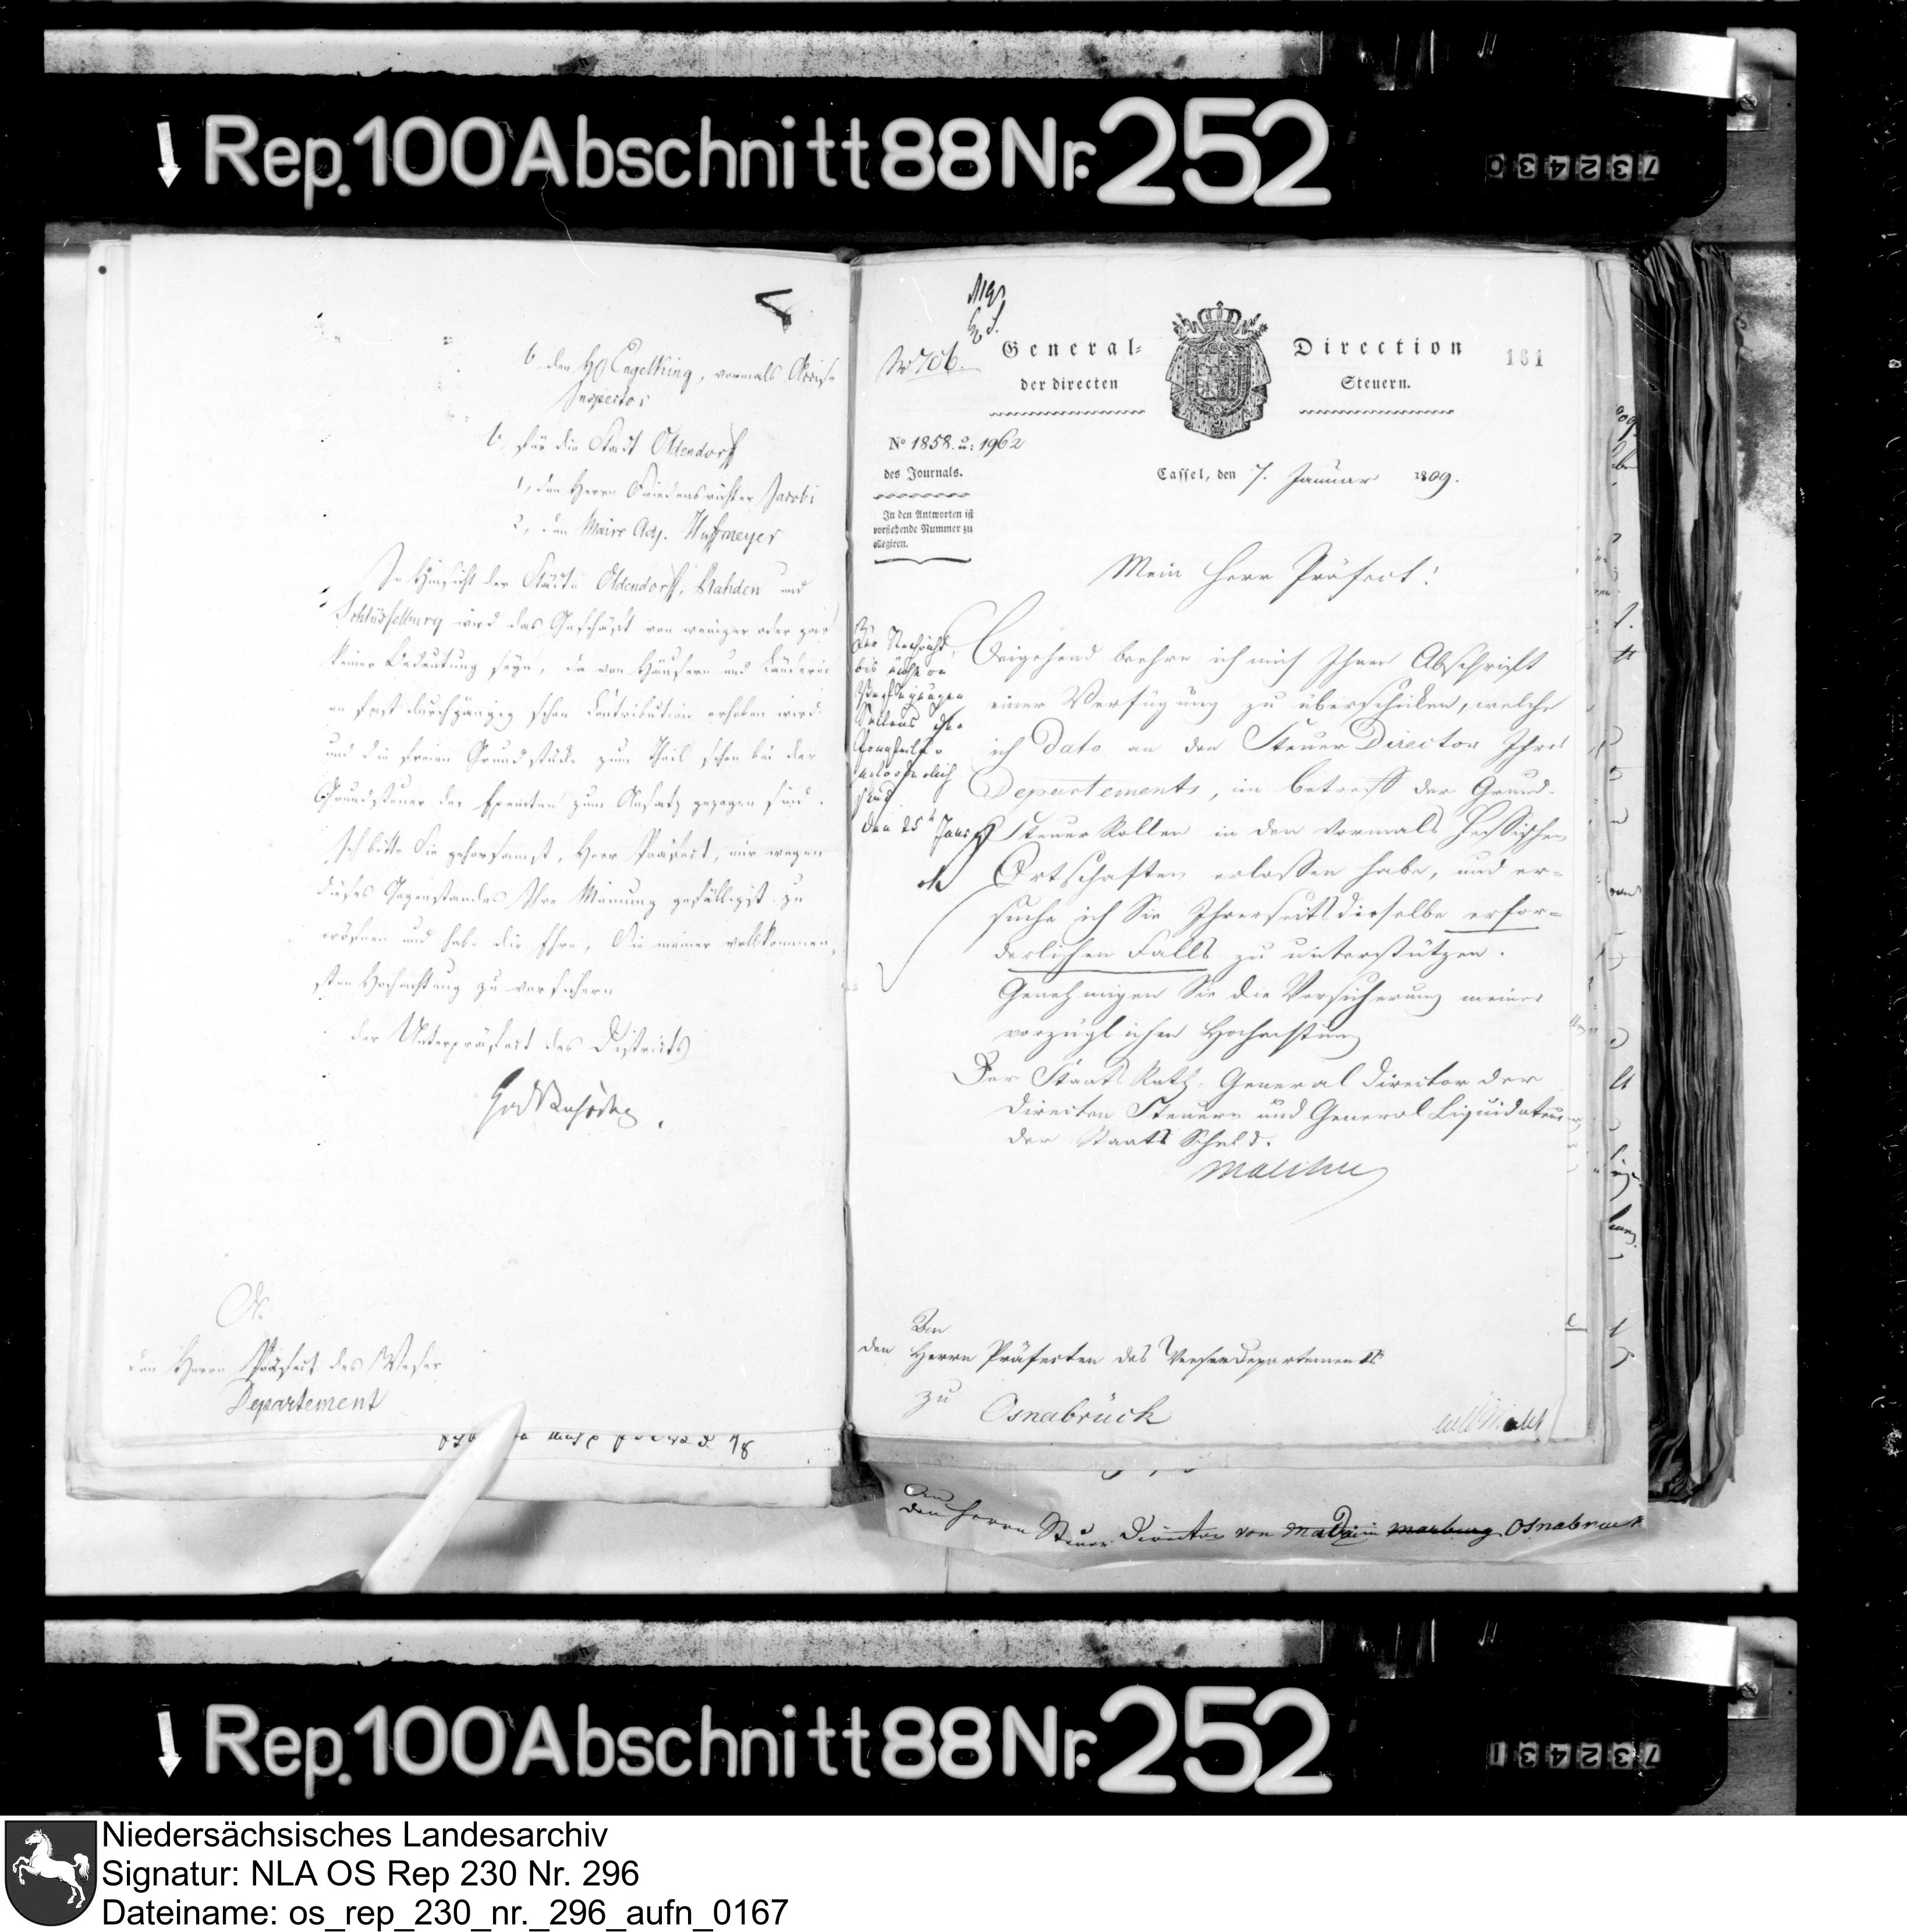 Rep. 100 Abschnitt 88 Nr. 252
732430
6. den H Engelking, vormals Kreis-
Inspector
b, für die Stadt Oldendorff
1, den Herrn Friedensrichter Jacobi
2, den Maire Adj. Huffmeyer
In Hinsicht der Städte Oldendorff, Rahden und
Schlüsselburg wird das Geschäft von weniger oder gar
keiner Bedeutung seyn, da von Häusern und Länderei
en fast durchgängig schon Contribution erhoben wird
und die freien Grundstücke zum Theil schon bei der
Grundsteuer der Exemten zum Ansatz gezogen sind.
Ich bitte Sie gehorsamst, Herr Präfect, mir wegen
dieses Gegenstandes Ihre Meinung gefälligst zu
eröfnen und habe die Ehre, Sie meiner vollkommen
sten Hochachtung zu versichern
der Unterpräfect des Districts
An
den Herrn Präfect des Weser
Departement
No 706.
General- Direction
der directen Steuern.
161
No 1858. u: 1962
des Journals.
Cassel, den 7. Januar 1809.
In den Antworten ist
vorstehende Nummer zu
allegiren.
Mein Herr Präfect!
Zur Nachricht,
bis nähere
Verfügungen
Seitens
erforderlich
sind
den 25t Jan
Beigehend beehre ich mich Ihnen Abschrift
einer Verfügung zu überschicken, welche
ich dato an den Steuer Director Ihres
Departements, in betreff der Grund-
Steuer Rollen in den vormals Hessischen
Ortschaften erlassen habe, und er-
suche ich Sie Ihrerseits dieselbe erfor-
derlichen Falls zu unterstützen.
Genehmigen Sie die Versicherung meiner
vorzüglichen Hochachtung
Der Staats Rath, General Director der
directen Steuern und General Liquidateur
der Staats Schuld.
Malchus
An
den Herrn Präfecten des Weserdepartements
zu
Osnabrück
An
den Herrn Steuer Director von Marburg Osnabrück
Rep. 100 Abschnitt 88 Nr. 252
732431
Niedersächsisches Landesarchiv
Signatur: NLA OS Rep 230 Nr. 296
Dateiname: os_rep_230_nr._296_aufn_0167